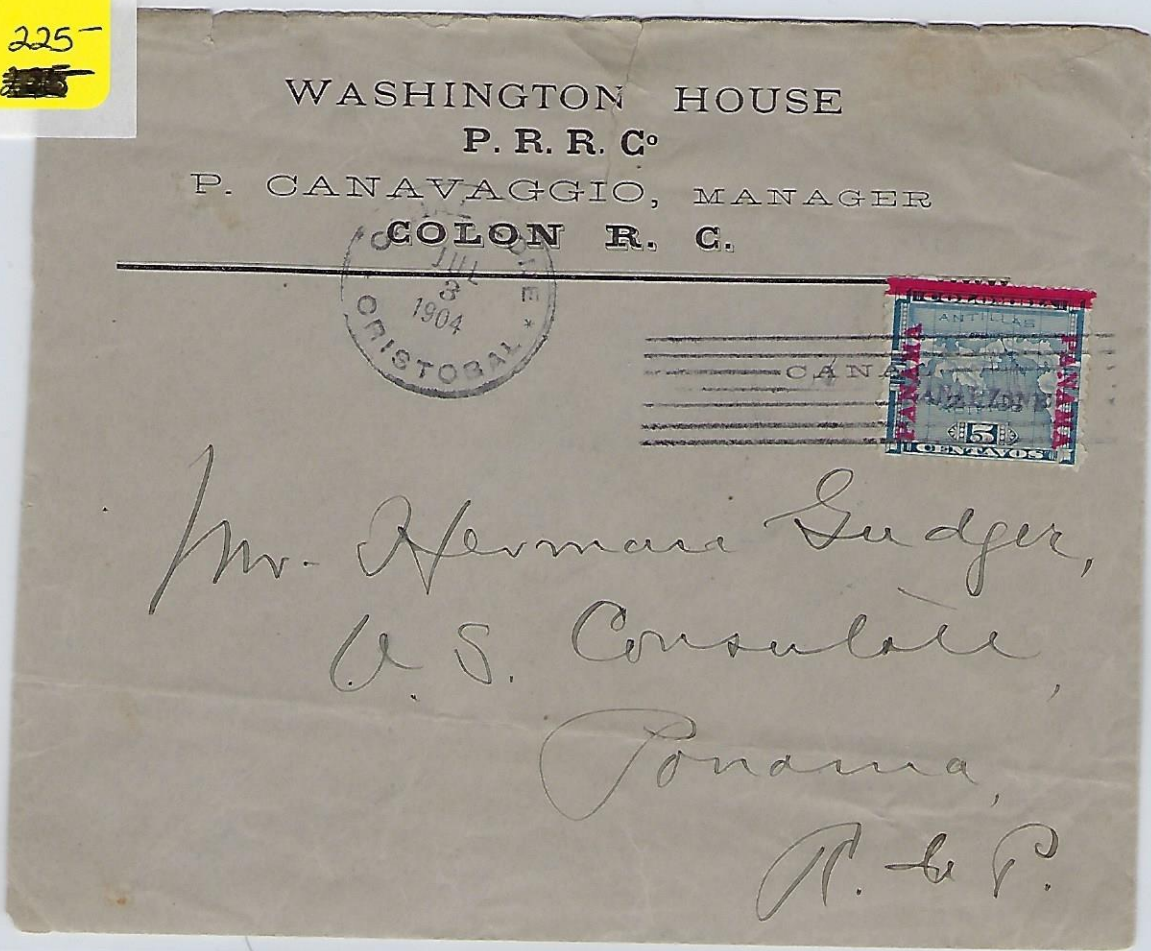 225-
WASHINGTON HOUSE
P. R. R. Cº
P. CANAVAGGIO, MANAGER
COLON R. C.
JUL
8
1904
CRISTOBAL *
CANAL
ANTILLAS
PANAMA
PANAMA
CANAL ZONE
5
CENTAVOS
Mr. Herman Gudger,
U. S. Consulate,
Panama,
R. de P.